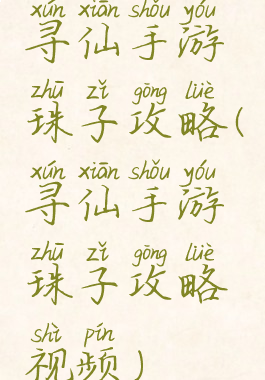 xún xiān shǒu yóu
寻仙手游
zhū zǐ gōng lüè
珠子攻略(
xún xiān shǒu yóu
寻仙手游
zhū zǐ gōng lüè
珠子攻略
shì pín
视频)